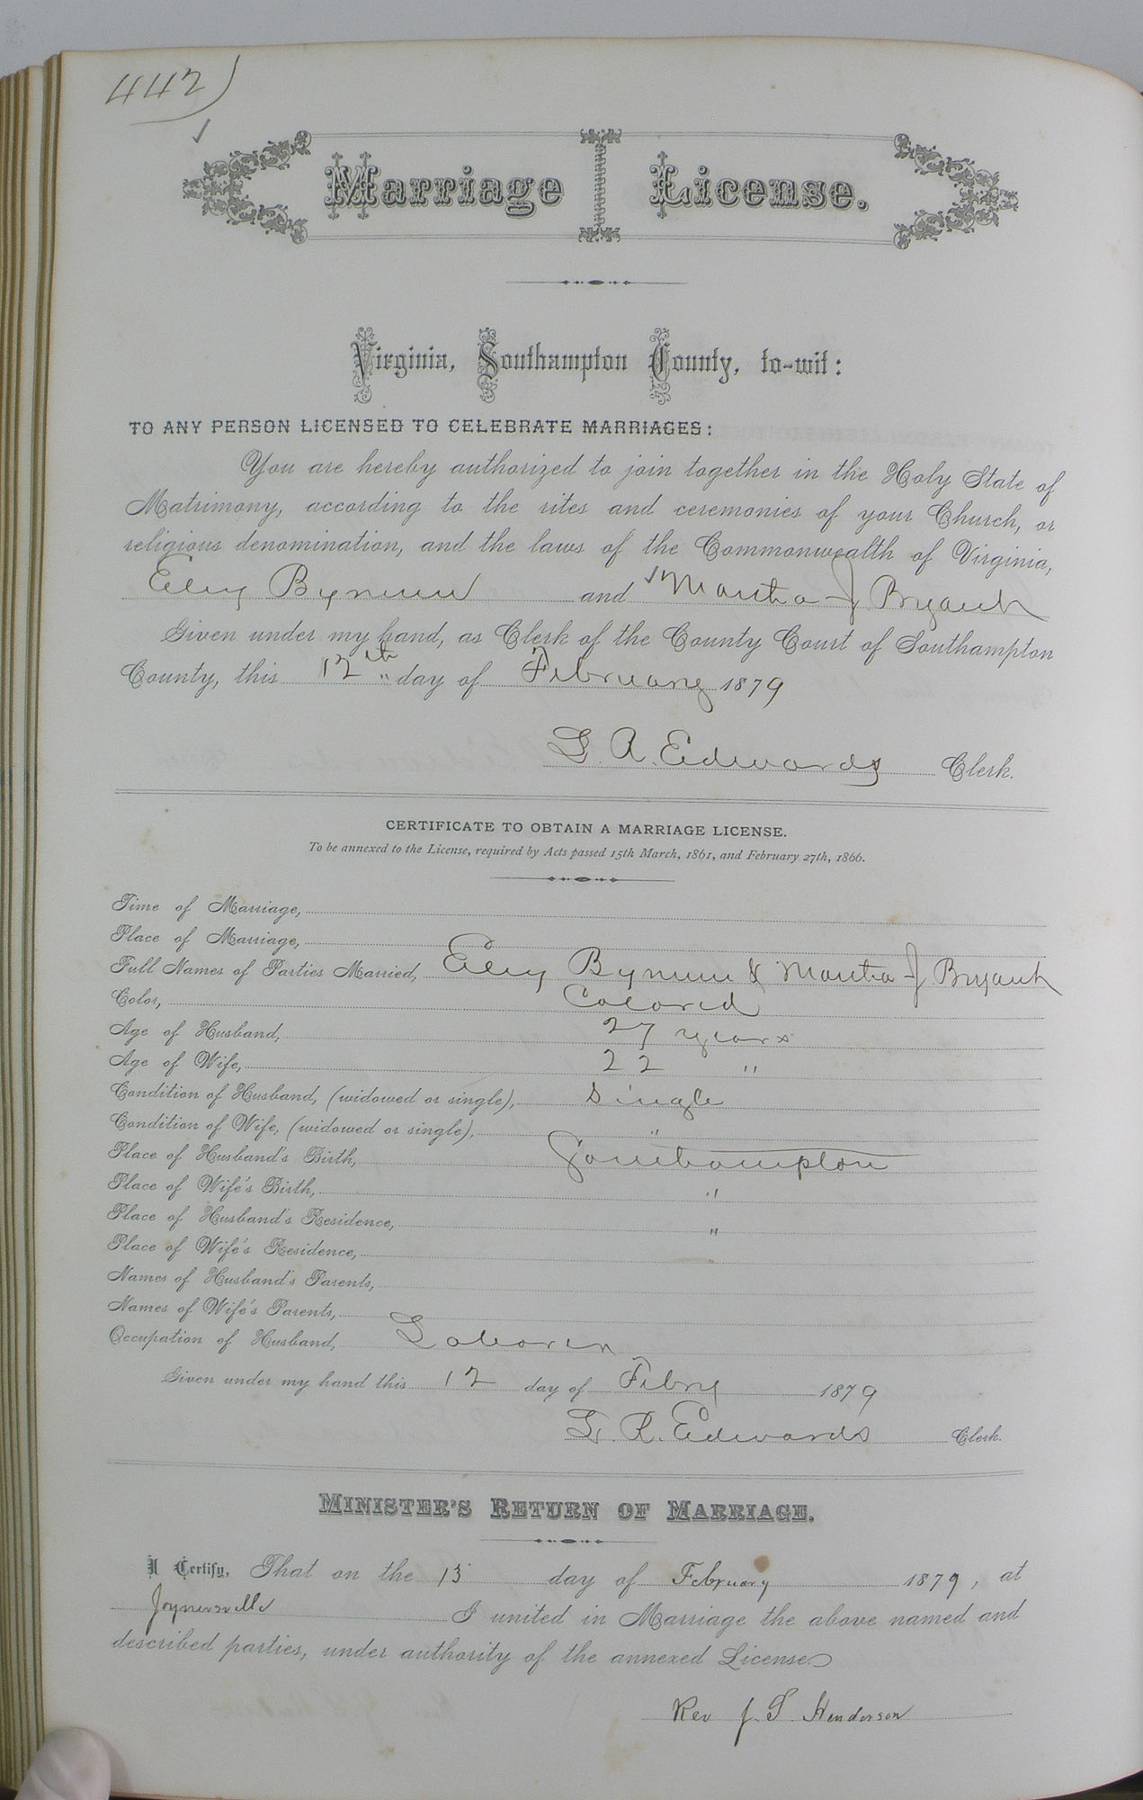 442)
Marriage License.
Virginia, Southampton County, to-wit:
TO ANY PERSON LICENSED TO CELEBRATE MARRIAGES:
You are hereby authorized to join together in the Holy State of
Matrimony, according to the rites and ceremonies of your Church, or
religious denomination, and the laws of the Commonwealth of Virginia,
Eley Bynum and Martha J Bryant
Given under my hand, as Clerk of the County Court of Southampton
County, this 12th day of February 1879
L. R. Edwards Clerk.
CERTIFICATE TO OBTAIN A MARRIAGE LICENSE.
To be annexed to the License, required by Acts passed 15th March, 1861, and February 27th, 1866.
Time of Marriage,
Place of Marriage,
Full Names of Parties Married, Eley Bynum & Martha J Bryant
Color, Colored
Age of Husband, 27 years
Age of Wife, 22 "
Condition of Husband, (widowed or single), Single
Condition of Wife, (widowed or single), "
Place of Husband's Birth, Southampton
Place of Wife's Birth, "
Place of Husband's Residence, "
Place of Wife's Residence,
Names of Husband's Parents,
Names of Wife's Parents,
Occupation of Husband, Laborer
Given under my hand this 12 day of Febry 1879
L. R. Edwards Clerk.
MINISTER'S RETURN OF MARRIAGE.
I Certify, That on the 13 day of February 1879, at
Joynersville I united in Marriage the above named and
described parties, under authority of the annexed License
Rev J. S. Henderson